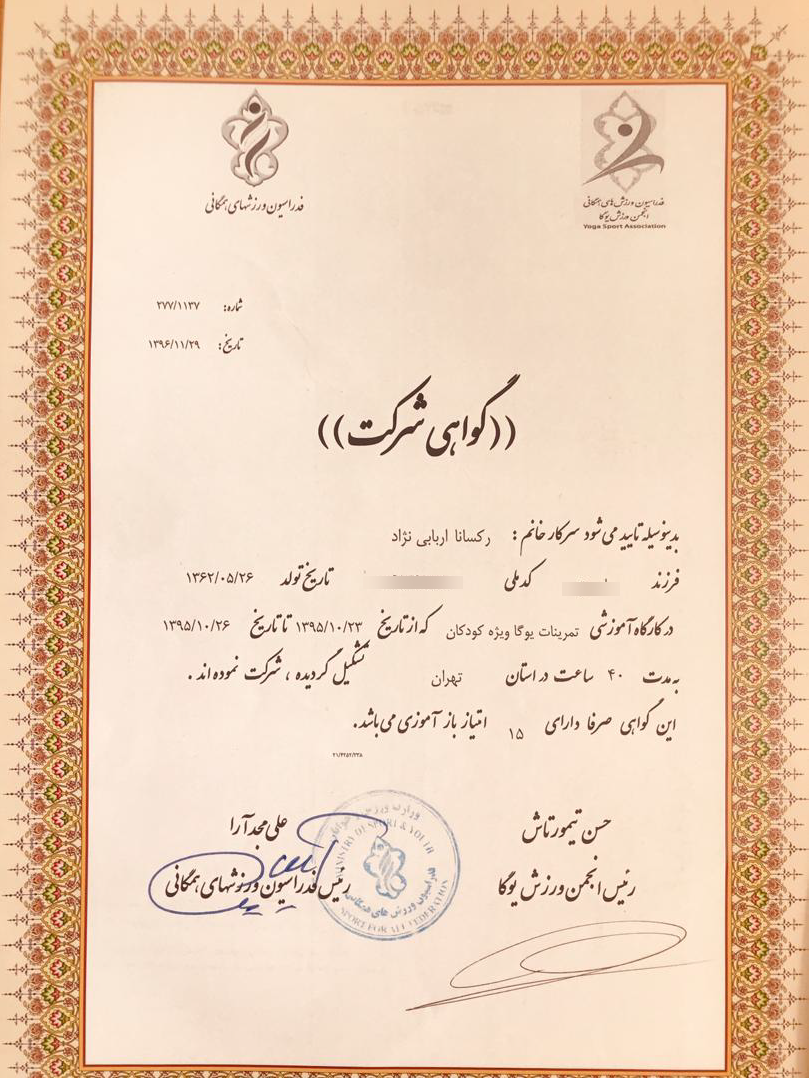 فدراسیون ورزشهای همگانی
فدراسیون ورزش های همگانی
انجمن ورزش یوگا
Yoga Sport Association
شماره: ۲۷۷/۱۱۳۷
تاریخ: ۱۳۹۶/۱۱/۲۹
((گواهی شرکت))
بدینوسیله تایید می شود سرکار خانم: رکسانا اربابی نژاد
فرزند کد ملی تاریخ تولد ۱۳۶۲/۰۵/۲۶
در کارگاه آموزشی تمرینات یوگا ویژه کودکان که از تاریخ ۱۳۹۵/۱۰/۲۳ تا تاریخ ۱۳۹۵/۱۰/۲۶
به مدت ۴۰ ساعت در استان تهران تشکیل گردیده، شرکت نموده اند.
این گواهی صرفا دارای ۱۵ امتیاز باز آموزی می باشد.
حسن تیمورتاش
رئیس انجمن ورزش یوگا
علی مجدآرا
رئیس فدراسیون ورزشهای همگانی
وزارت ورزش و جوانان
MINISTRY OF SPORT & YOUTH
فدراسیون ورزش های همگانی
SPORT FOR ALL FEDERATION